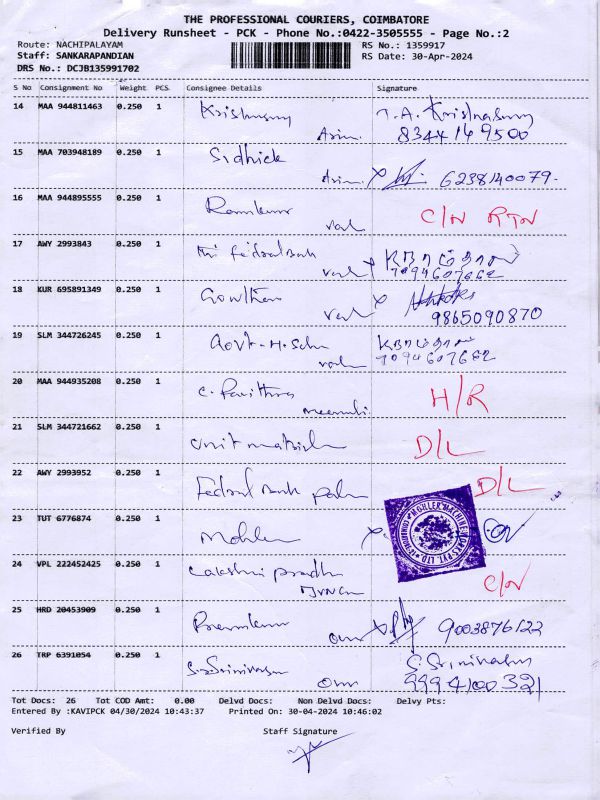 THE PROFESSIONAL COURIERS, COIMBATORE
Delivery Runsheet - PCK - Phone No.:0422-3505555 - Page No.:2
Route: NACHIPALAYAM RS No.: 1359917
Staff: SANKARAPANDIAN RS Date: 30-Apr-2024
DRS No.: DCJB135991702
S No Consignment No Weight PCS Consignee Details Signature
14 MAA 944811463 0.250 1 T.A. Krishnasamy
8344149500
15 MAA 703948189 0.250 1 Sidhick
6238140079.
16 MAA 944895555 0.250 1 Ramkumar C/N RTN
17 AWY 2993843 0.250 1 Federal Bank
7094607662
18 KUR 695891349 0.250 1 Gowtham
9865090870
19 SLM 344726245 0.250 1 Govt. H. Sch
7094607662
20 MAA 944935208 0.250 1 C. Pavithra H/R
21 SLM 344721662 0.250 1 D/L
22 AWY 2993952 0.250 1 Federal Bank D/L
23 TUT 6776874 0.250 1 Mohler
MOHLER MACHINE WORKS PVT. LTD.
24 VPL 222452425 0.250 1 Lakshmi C/N
25 HRD 20453909 0.250 1 Premkumar 9003876122
26 TRP 6391054 0.250 1 Srinivasan S Srinivasan
9994100321
Tot Docs: 26 Tot COD Amt: 0.00 Delvd Docs: Non Delvd Docs: Delvy Pts:
Entered By :KAVIPCK 04/30/2024 10:43:37 Printed On: 30-04-2024 10:46:02
Verified By Staff Signature